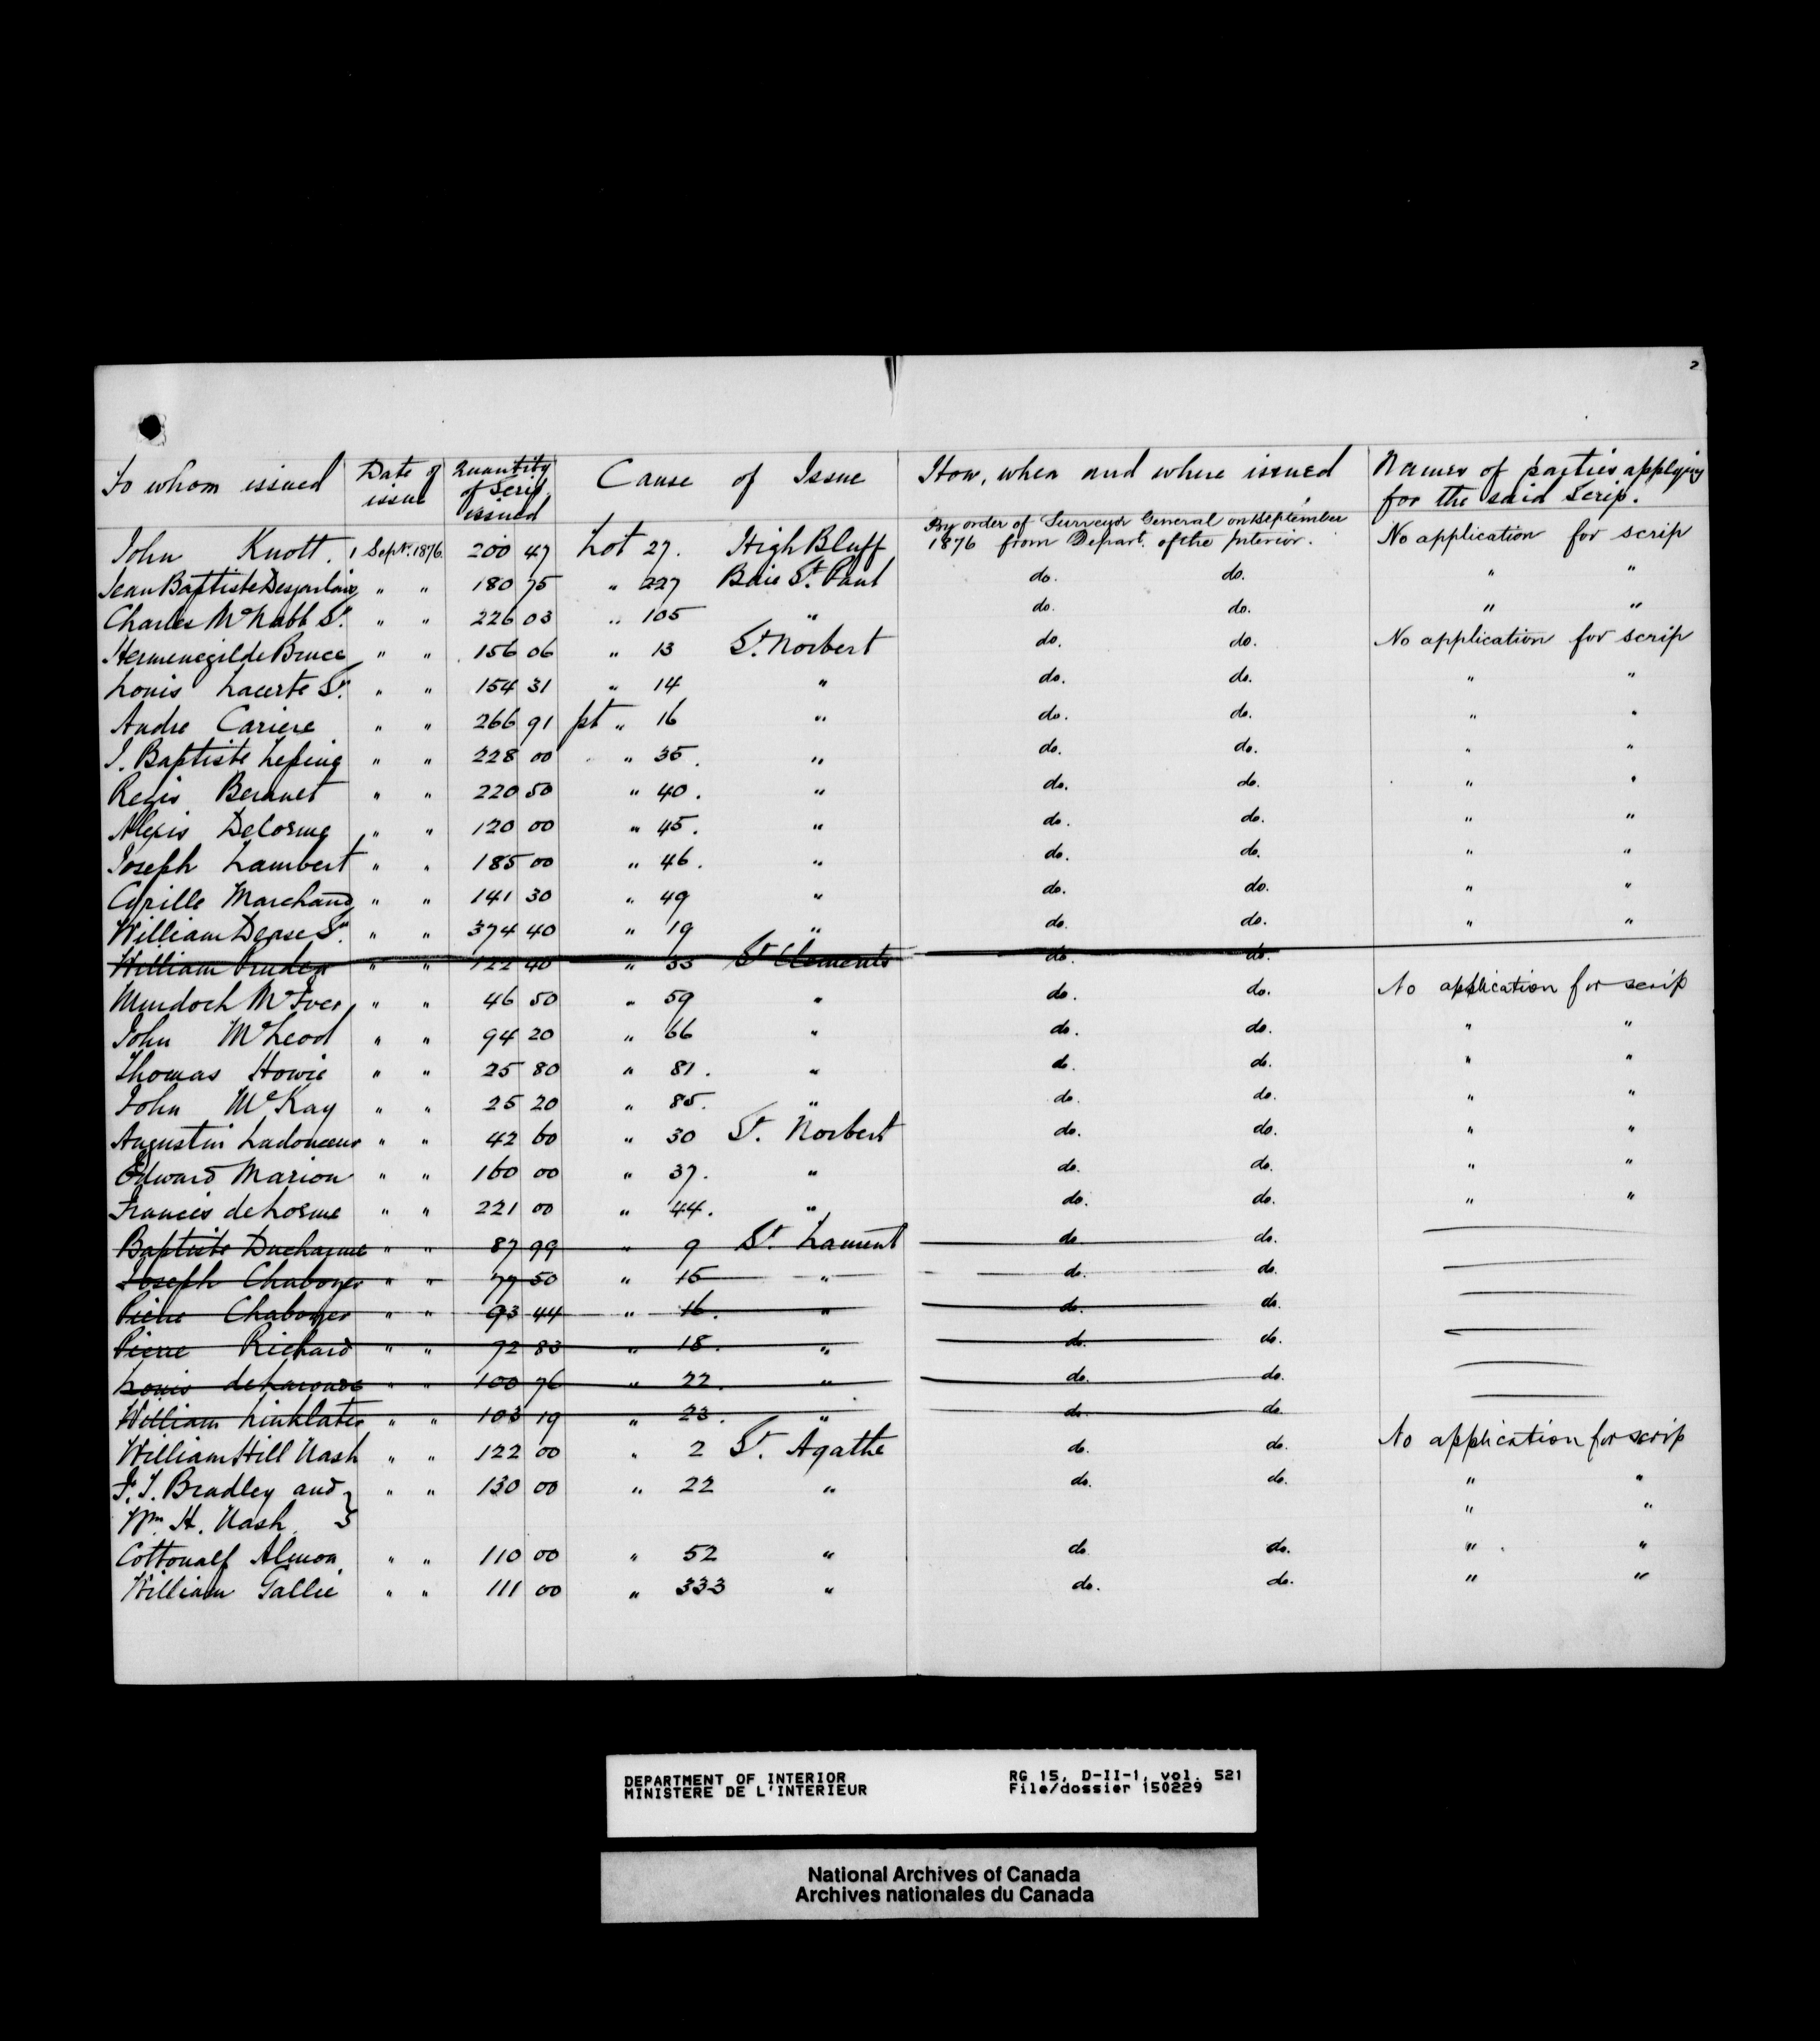 2
To whom issued Date of issue Quantity of Scrip issued Cause of Issue How, when and where issued Names of parties applying for the said Scrip.
John Knott. 1 Sept. 1876. 200 47 Lot 27. High Bluff By order of Surveyor General on September 1876 from Depart. of the Interior. No application for scrip
Jean Baptiste Desjarlais " " 180 75 " 227 Baie St. Paul do. do. " "
Charles McNabb Sr. " " 226 03 " 105 " do. do. " "
Hermenegilde Bruce " " 156 06 " 13 St. Norbert do. do. No application for scrip
Louis Lacerte Sr. " " 154 31 " 14 " do. do. " "
Andre Cariere " " 266 91 pt " 16 " do. do. " "
J. Baptiste Lepine " " 228 00 " 35. " do. do. " "
Regis " " 220 50 " 40. " do. do. " "
Alexis DeLorme " " 120 00 " 45. " do. do. " "
Joseph Lambert " " 185 00 " 46. " do. do. " "
Cyrille Marchand " " 141 30 " 49 " do. do. " "
William Dease Sr. " " 374 40 " 19 " do. do. " "
William Pruden " " 122 40 " 33 St Clements do. do.
Murdoch McIver " " 46 50 " 59 " do. do. No application for scrip
John McLeod " " 94 20 " 66 " do. do. " "
Thomas Howie " " 25 80 " 81. " do. do. " "
John McKay " " 25 20 " 85. " do. do. " "
Augustin Ladouceur " " 42 60 " 30 St. Norbert do. do. " "
Edward Marion " " 160 00 " 37. " do. do. " "
Francis deLorme " " 221 00 " 44. " do. do. " "
Baptiste Ducharme " " 87 99 " 9 St. Laurent do do.
Joseph Chaboyer " " 77 50 " 15 " do. do.
Pierre Chaboyer " " 93 44 " 16. " do. do.
Pierre Richard " " 72 83 " 18. " do. do.
Louis deLaronde " " 100 76 " 22. " do. do.
William Linklater " " 103 19 " 23. " do. do.
William Hill Nash " " 122 00 " 2 St. Agathe do. do. No application for scrip
F. T. Bradley and } " " 130 00 " 22 " do. do. " "
Wm. H. Nash. " "
Almon " " 110 00 " 52 " do do. " "
William Gallie " " 111 00 " 333 " do. do. " "
DEPARTMENT OF INTERIOR RG 15, D-II-1, vol. 521
MINISTERE DE L'INTERIEUR File/dossier 150229
National Archives of Canada
Archives nationales du Canada